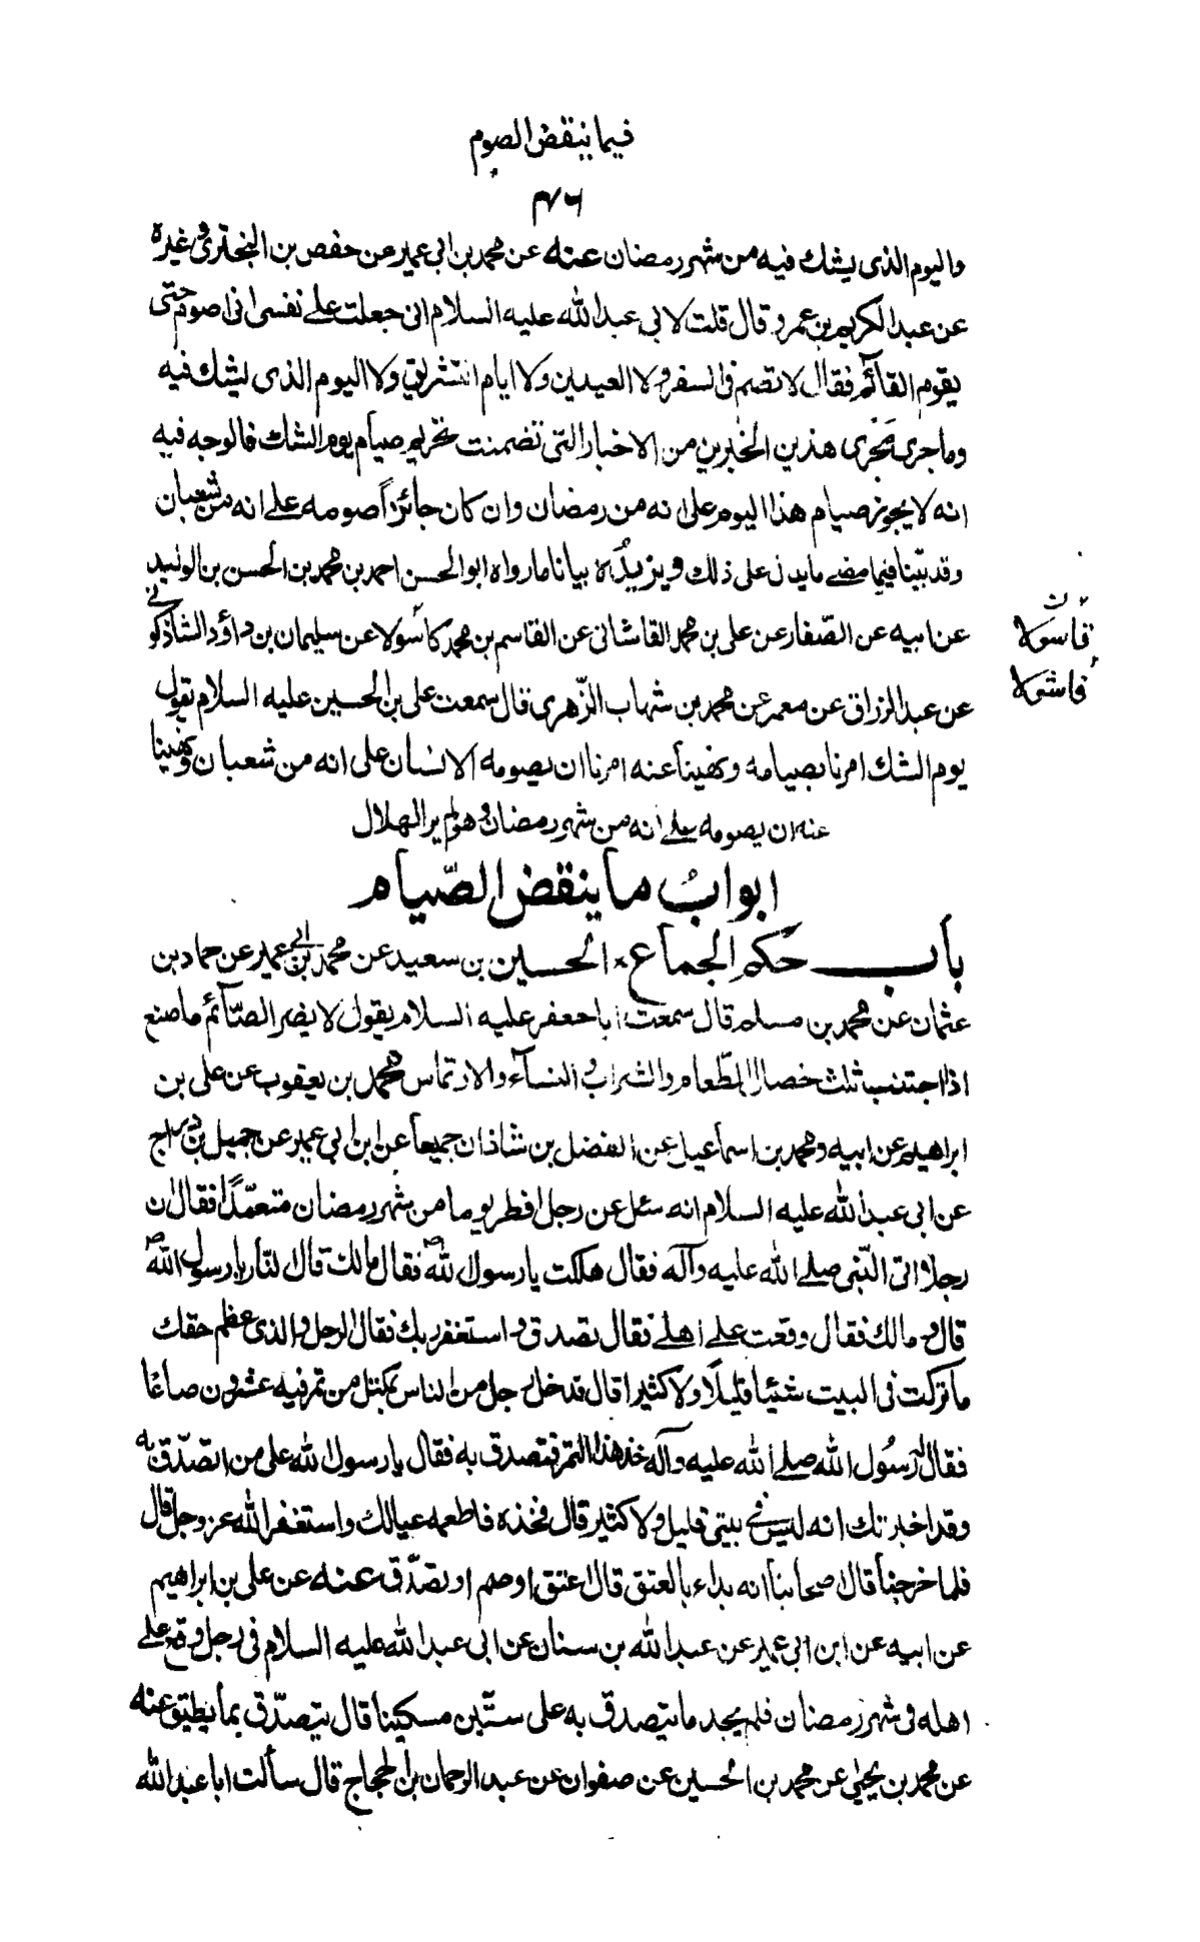 فيما ينقض الصوم
٣٧٦
واليوم الذى يشك فيه من شهر رمضان عنه عن محمد بن ابى عمير عن حفص بن البخترى وغيره
عن عبد الكريم بن عمرو قال قلت لابى عبد الله عليه السلام انى جعلت على نفسى انى اصوم حتى
يقوم القآئم فقال لا تصم فى السفر ولا العيدين ولا ايام التشريق ولا اليوم الذى يشك فيه
وما جرى مَجرى هذين الخبرين من الاخبار التى تضمنت تحريم صيام يوم الشك فالوجه فيه
انه لا يجوز صيام هذا اليوم على انه من رمضان وان كان جائزاً صومه على انه من شعبان
وقد بيّنا فيما مضى ما يدل على ذلك ويزيدُه بيانا ما رواه ابو الحسن احمد بن محمد بن الحسن بن الوليد
عن ابيه عن الصّفار عن على بن محمد القاشانى عن القاسم بن محمد كاسُولا عن سليمان بن داؤد الشاذكونى
عن عبد الرزاق عن معمر عن محمد بن شهاب الزّهرى قال سمعت على بن الحسين عليه السلام يقول
يوم الشك امرنا بصيامه ونهينا عنه امرنا ان يصومه الانسان على انه من شعبان ونهينا
عنه ان يصومه على انه من شهر رمضان وهو لم ير الهلال
ابوابُ ما ينقض الصّيام
باب حُكم الجماع الحسين بن سعيد عن محمد بن ابى عمير عن حماد بن
عثمان عن محمد بن مسلم قال سمعت ابا جعفر عليه السلام يقول لا يضر الصّآئم ما صنع
اذا اجتنب ثلث خصال الطّعام والشراب والنسآء والارتماس محمد بن يعقوب عن على بن
ابراهيم عن ابيه ومحمد بن اسماعيل عن الفضل بن شاذان جميعا عن ابن ابى عمير عن جميل بن دراج
عن ابى عبد الله عليه السلام انه سئل عن رجل افطر يوما من شهر رمضان متعمّداً فقال ان
رجلا اتى النّبى صلى الله عليه وآله فقال هلكت يا رسول الله فقال مالك قال النّار يا رسول الله
قال و مالك فقال وقعت على اهلى فقال تصدق و استغفر ربك فقال الرجل و الذى عظم حقك
ما تركت فى البيت شيئا قليلًا ولا كثيرا قال فدخل رجل من الناس بمكتل من تمر فيه عشرون صاعًا
فقال له رسُول الله صلى الله عليه وآله خذ هذا التمر فتصدق به فقال يا رسول الله على من اتصدّق به
وقد اخبرتك انه ليس فى بيتى قليل ولا كثير قال فخذه فاطعمه عيالك واستغفر الله عز وجل قال
فلما خرجنا قال اصحابنا انه بداء بالعتق قال اعتق او صم او تصدّق عنه عن على بن ابراهيم
عن ابيه عن ابن ابى عمير عن عبد الله بن سنان عن ابى عبد الله عليه السلام فى رجل وقع على
اهله فى شهر رمضان فلم يجد ما يتصدق به على ستّين مسكينا قال يتصدّق بما يطيق عنه
عن محمد بن يحيى عن محمد بن الحسين عن صفوان عن عبد الرحمان بن الحجاج قال سألت ابا عبد الله
قاسولا
قاشولا